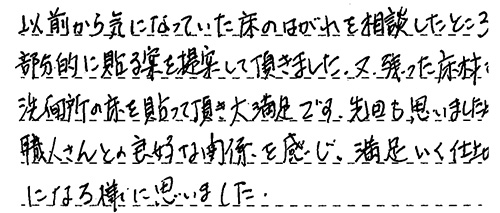 以前から気になっていた床のはがれを相談したところ
部分的に貼る案を提案して頂きました。又、残った床材で
洗面所の床を貼って頂き大満足です。先回も思いましたが
職人さんとの良好な関係を感じ、満足いく仕上
になる様に思いました。